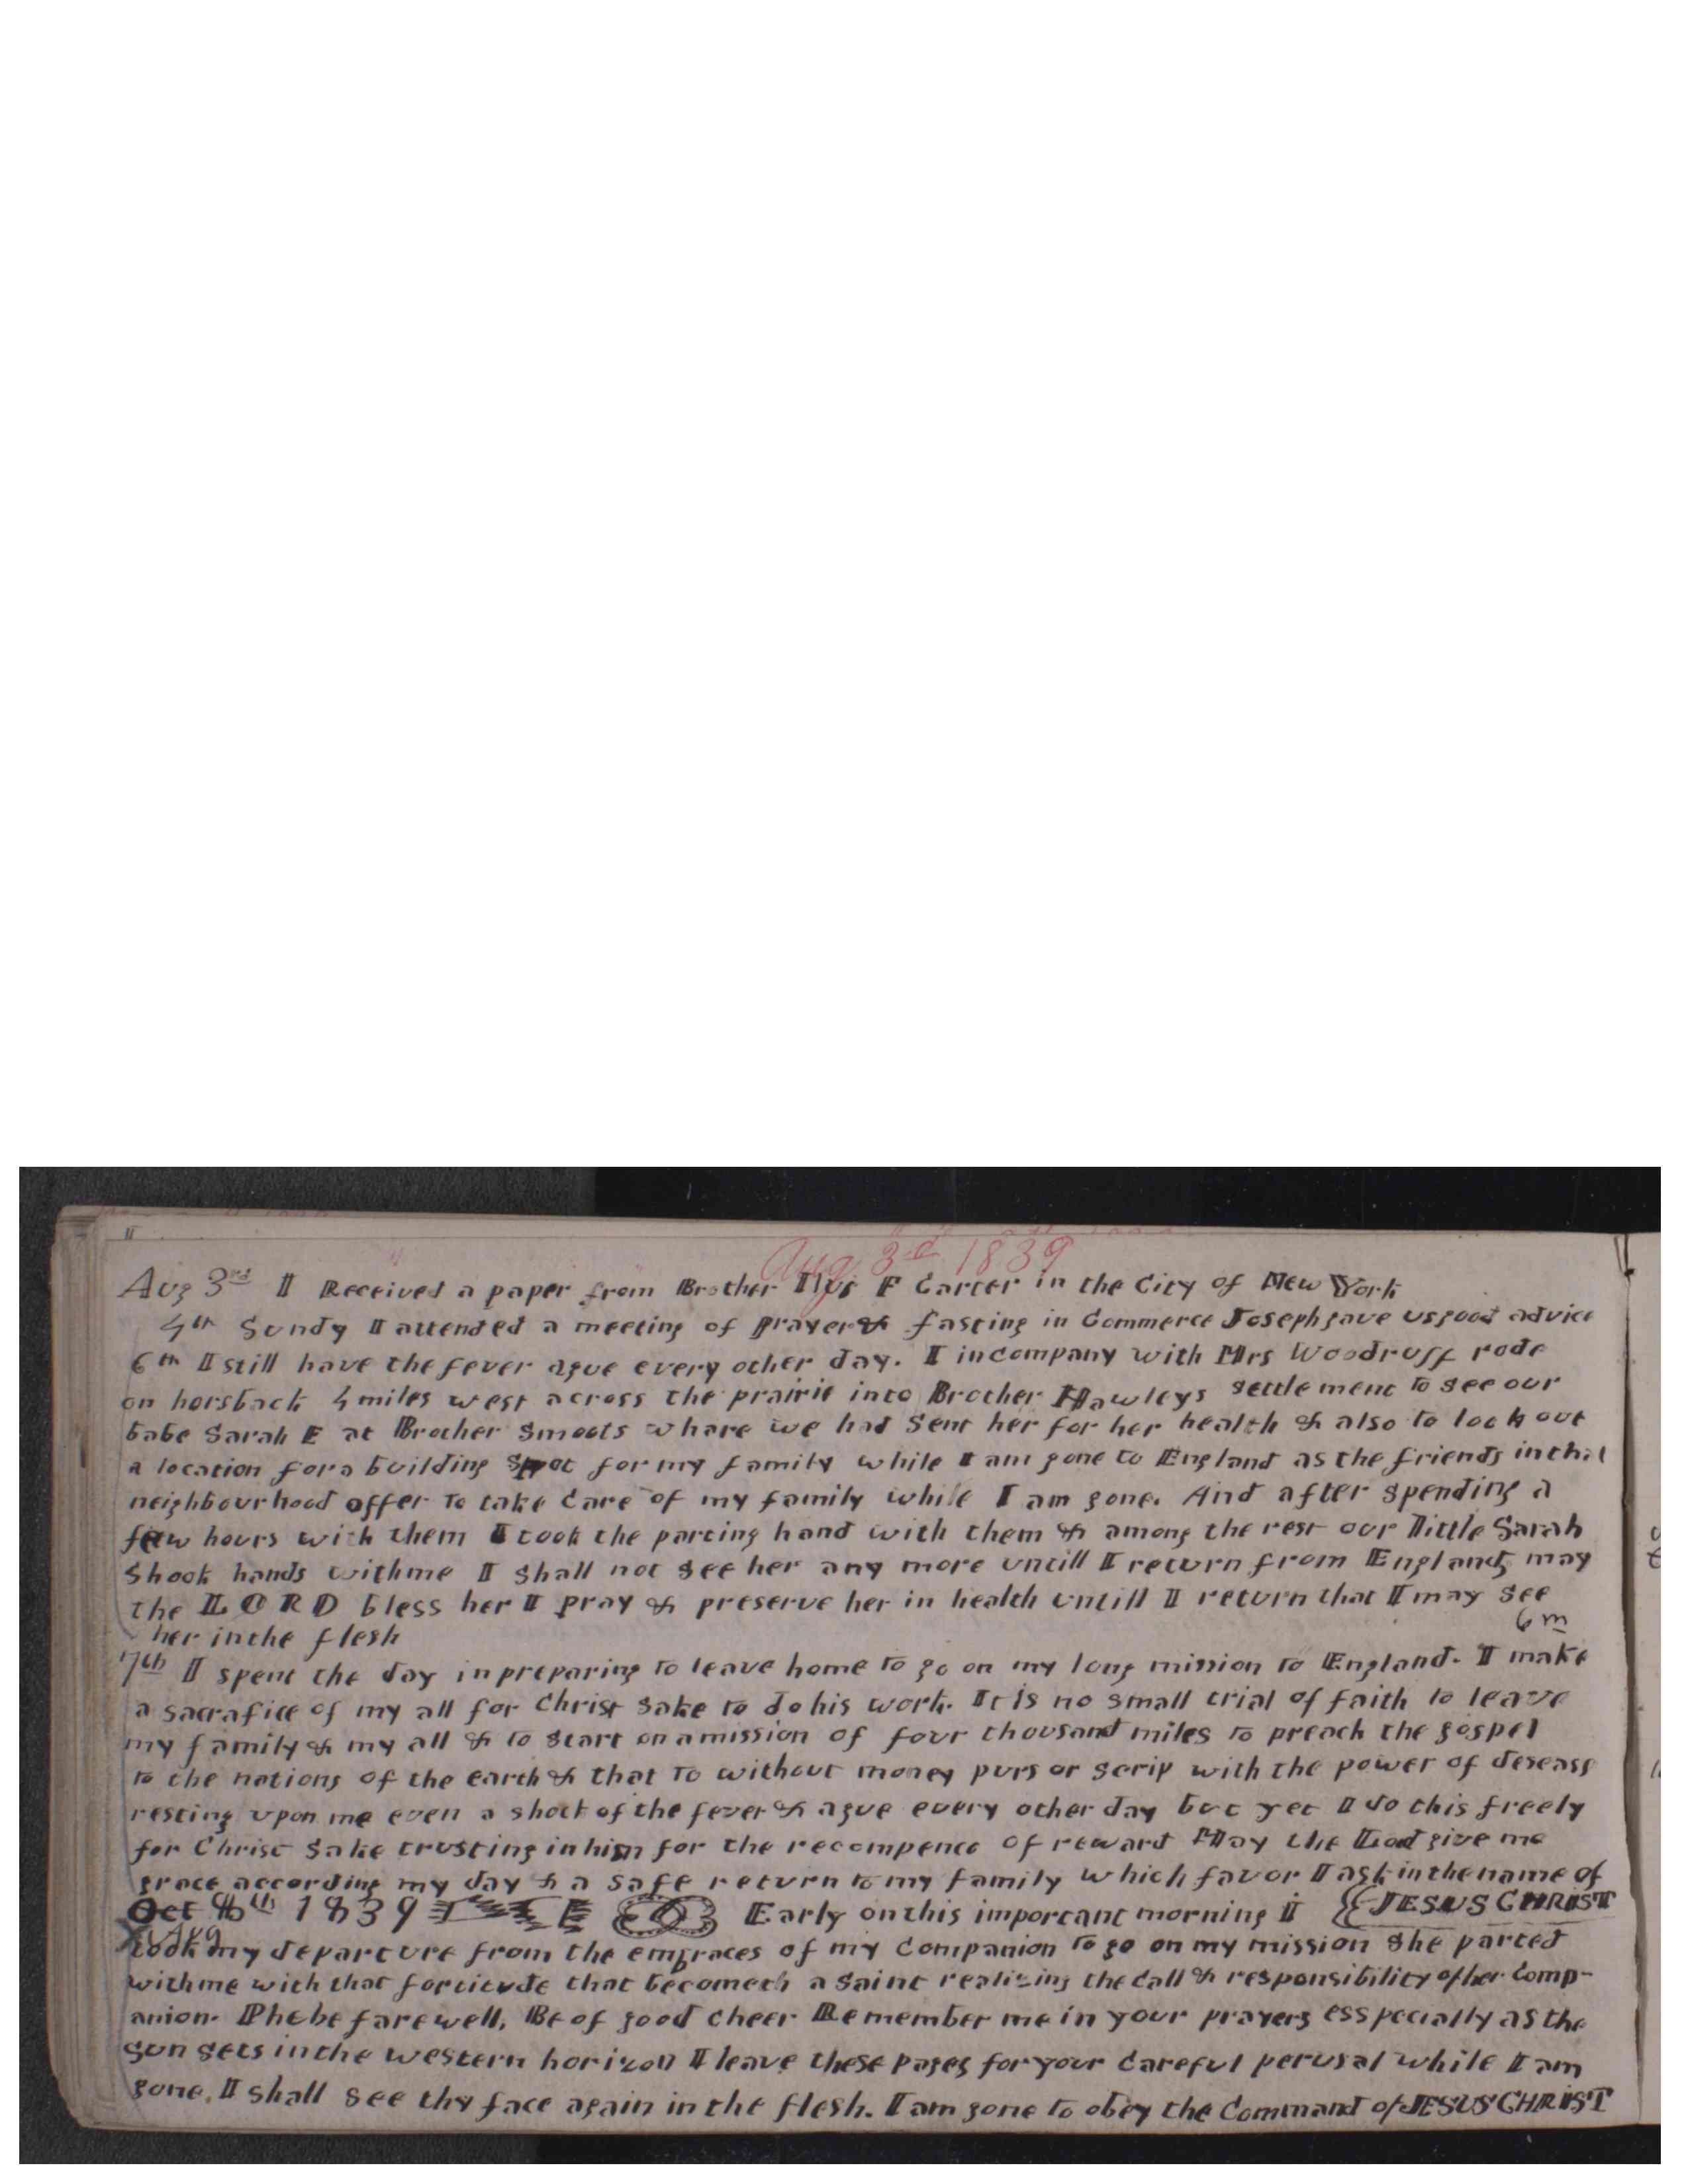 Aug. 3rd 1839
Aug 3rd I Received a paper from Brother Ilus F Carter in the City of New York
4th Sundy I attended a meeting of prayer & fasting in Commerce Joseph gave us good advice
6th I still have the fever ague every other day. I in company with Mrs Woodruff rode
on horsback 4 miles west across the prairie into Brother Hawleys settlement to see our
babe Sarah E at Brother Smoots whare we had sent her for her health & also to look out
a location for a building spot for my family while I am gone to England as the friends in that
neighbourhood offer to take care of my family while I am gone. And after spending a
few hours with them I took the parting hand with them & among the rest our little Sarah
shook hands with me I shall not see her any more untill I return from England, may
the LORD bless her I pray & preserve her in health untill I return that I may see
her in the flesh 6 m
7th I spent the day in preparing to leave home to go on my long mission to England. I make
a sacrafice of my all for Christ sake to do his work. It is no small trial of faith to leave
my family & my all & to start on a mission of four thousand miles to preach the gospel
to the nations of the earth & that to without money purs or scrip with the power of deseass
resting upon me even a shock of the fever & ague every other day but yet I do this freely
for Christ sake trusting in him for the recompence of reward May the Lord give me
grace according my day & a safe return to my family which favor I ask in the name of
JESUS CHRIST
Oct 8th 1839 Early on this important morning I
X Aug
took my departure from the embraces of my companion to go on my mission she parted
with me with that forticude that becometh a saint realizing the call & responsibility of her comp-
anion. Phebe farewell, Be of good cheer Remember me in your prayers esspecially as the
sun sets in the western horizon I leave these pages for your careful perusal while I am
gone. I shall see thy face again in the flesh. I am gone to obey the command of JESUS CHRIST